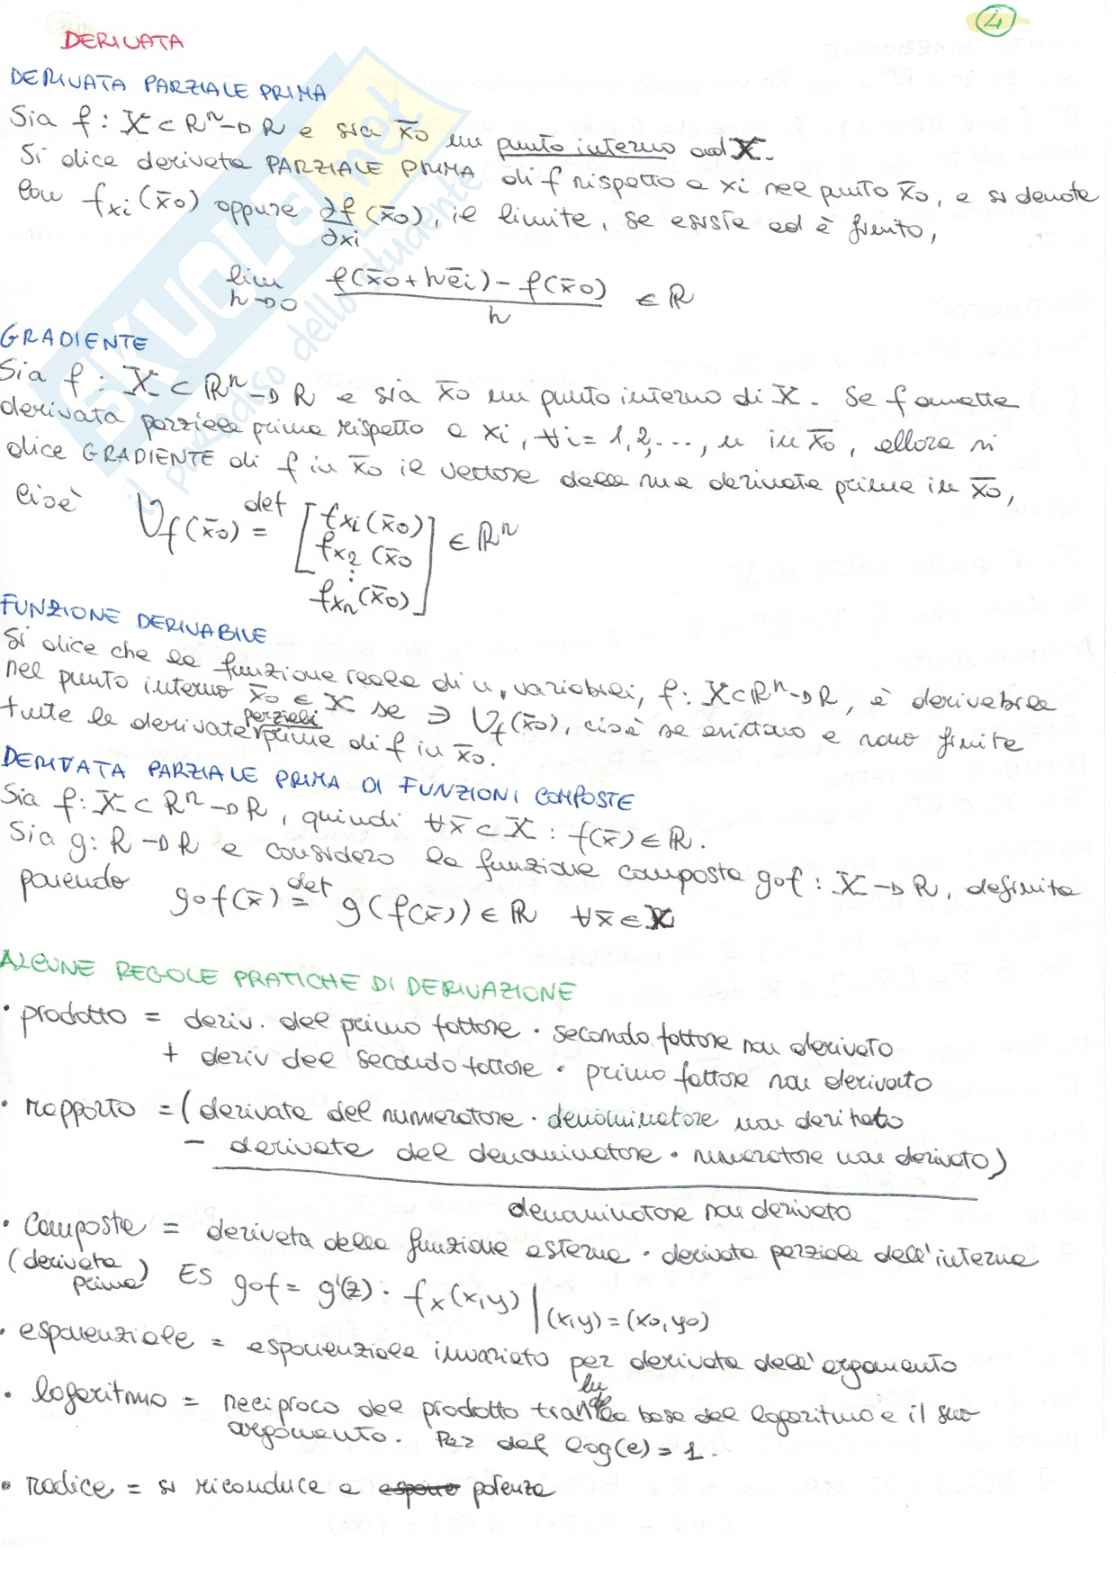 4
DERIVATA
DERIVATA PARZIALE PRIMA
Sia f : X ⊂ Rⁿ → R e sia x̄0 un punto interno ad X.
Si dice derivata PARZIALE PRIMA di f rispetto a xi nel punto x̄0, e si denota
con fxi(x̄0) oppure ∂f/∂xi (x̄0), il limite, se esiste ed è finito,
lim h→0 f(x̄0+hēi) - f(x̄0) / h ∈ R
GRADIENTE
Sia f : X ⊂ Rⁿ → R e sia x̄0 un punto interno di X. Se f ammette
derivata parziale prima rispetto a xi, ∀i = 1,2,..., n in x̄0, allora si
dice GRADIENTE di f in x̄0 il vettore delle sue derivate prime in x̄0,
cioè ∇f(x̄0) def= [fxi(x̄0)
fx2(x̄0
⋮
fxn(x̄0)] ∈ Rⁿ
FUNZIONE DERIVABILE
Si dice che la funzione reale di n, variabili, f: X⊂Rⁿ→R, è derivabile
nel punto interno x̄0 ∈ X se ∃ ∇f(x̄0), cioè se esistono e sono finite
tutte le derivate parziali prime di f in x̄0.
DERIVATA PARZIALE PRIMA DI FUNZIONI COMPOSTE
Sia f: X ⊂ Rⁿ → R, quindi ∀x̄ ⊂ X : f(x̄) ∈ R.
Sia g: R → R e considero la funzione composta gof : X → R, definita
ponendo gof(x̄) def= g(f(x̄)) ∈ R ∀x̄ ∈ X
ALCUNE REGOLE PRATICHE DI DERIVAZIONE
• prodotto = deriv. del primo fattore · secondo fattore non derivato
+ deriv del secondo fattore · primo fattore non derivato
• rapporto = (derivata del numeratore · denominatore non derivato
- derivata del denominatore · numeratore non derivato)
denominatore non derivato
• composta = derivata della funzione esterna · derivata parziale dell'interna
(derivata prima) ES gof = g'(z) · fx(x,y) |(x,y)=(x0,y0)
• esponenziale = esponenziale invariato per derivata dell'argomento
• logaritmo = reciproco del prodotto tra ln la base del logaritmo e il suo
argomento. Per def log(e) = 1.
• radice = si riconduce a potenza
SKUOLA.net
il paradiso dello studente